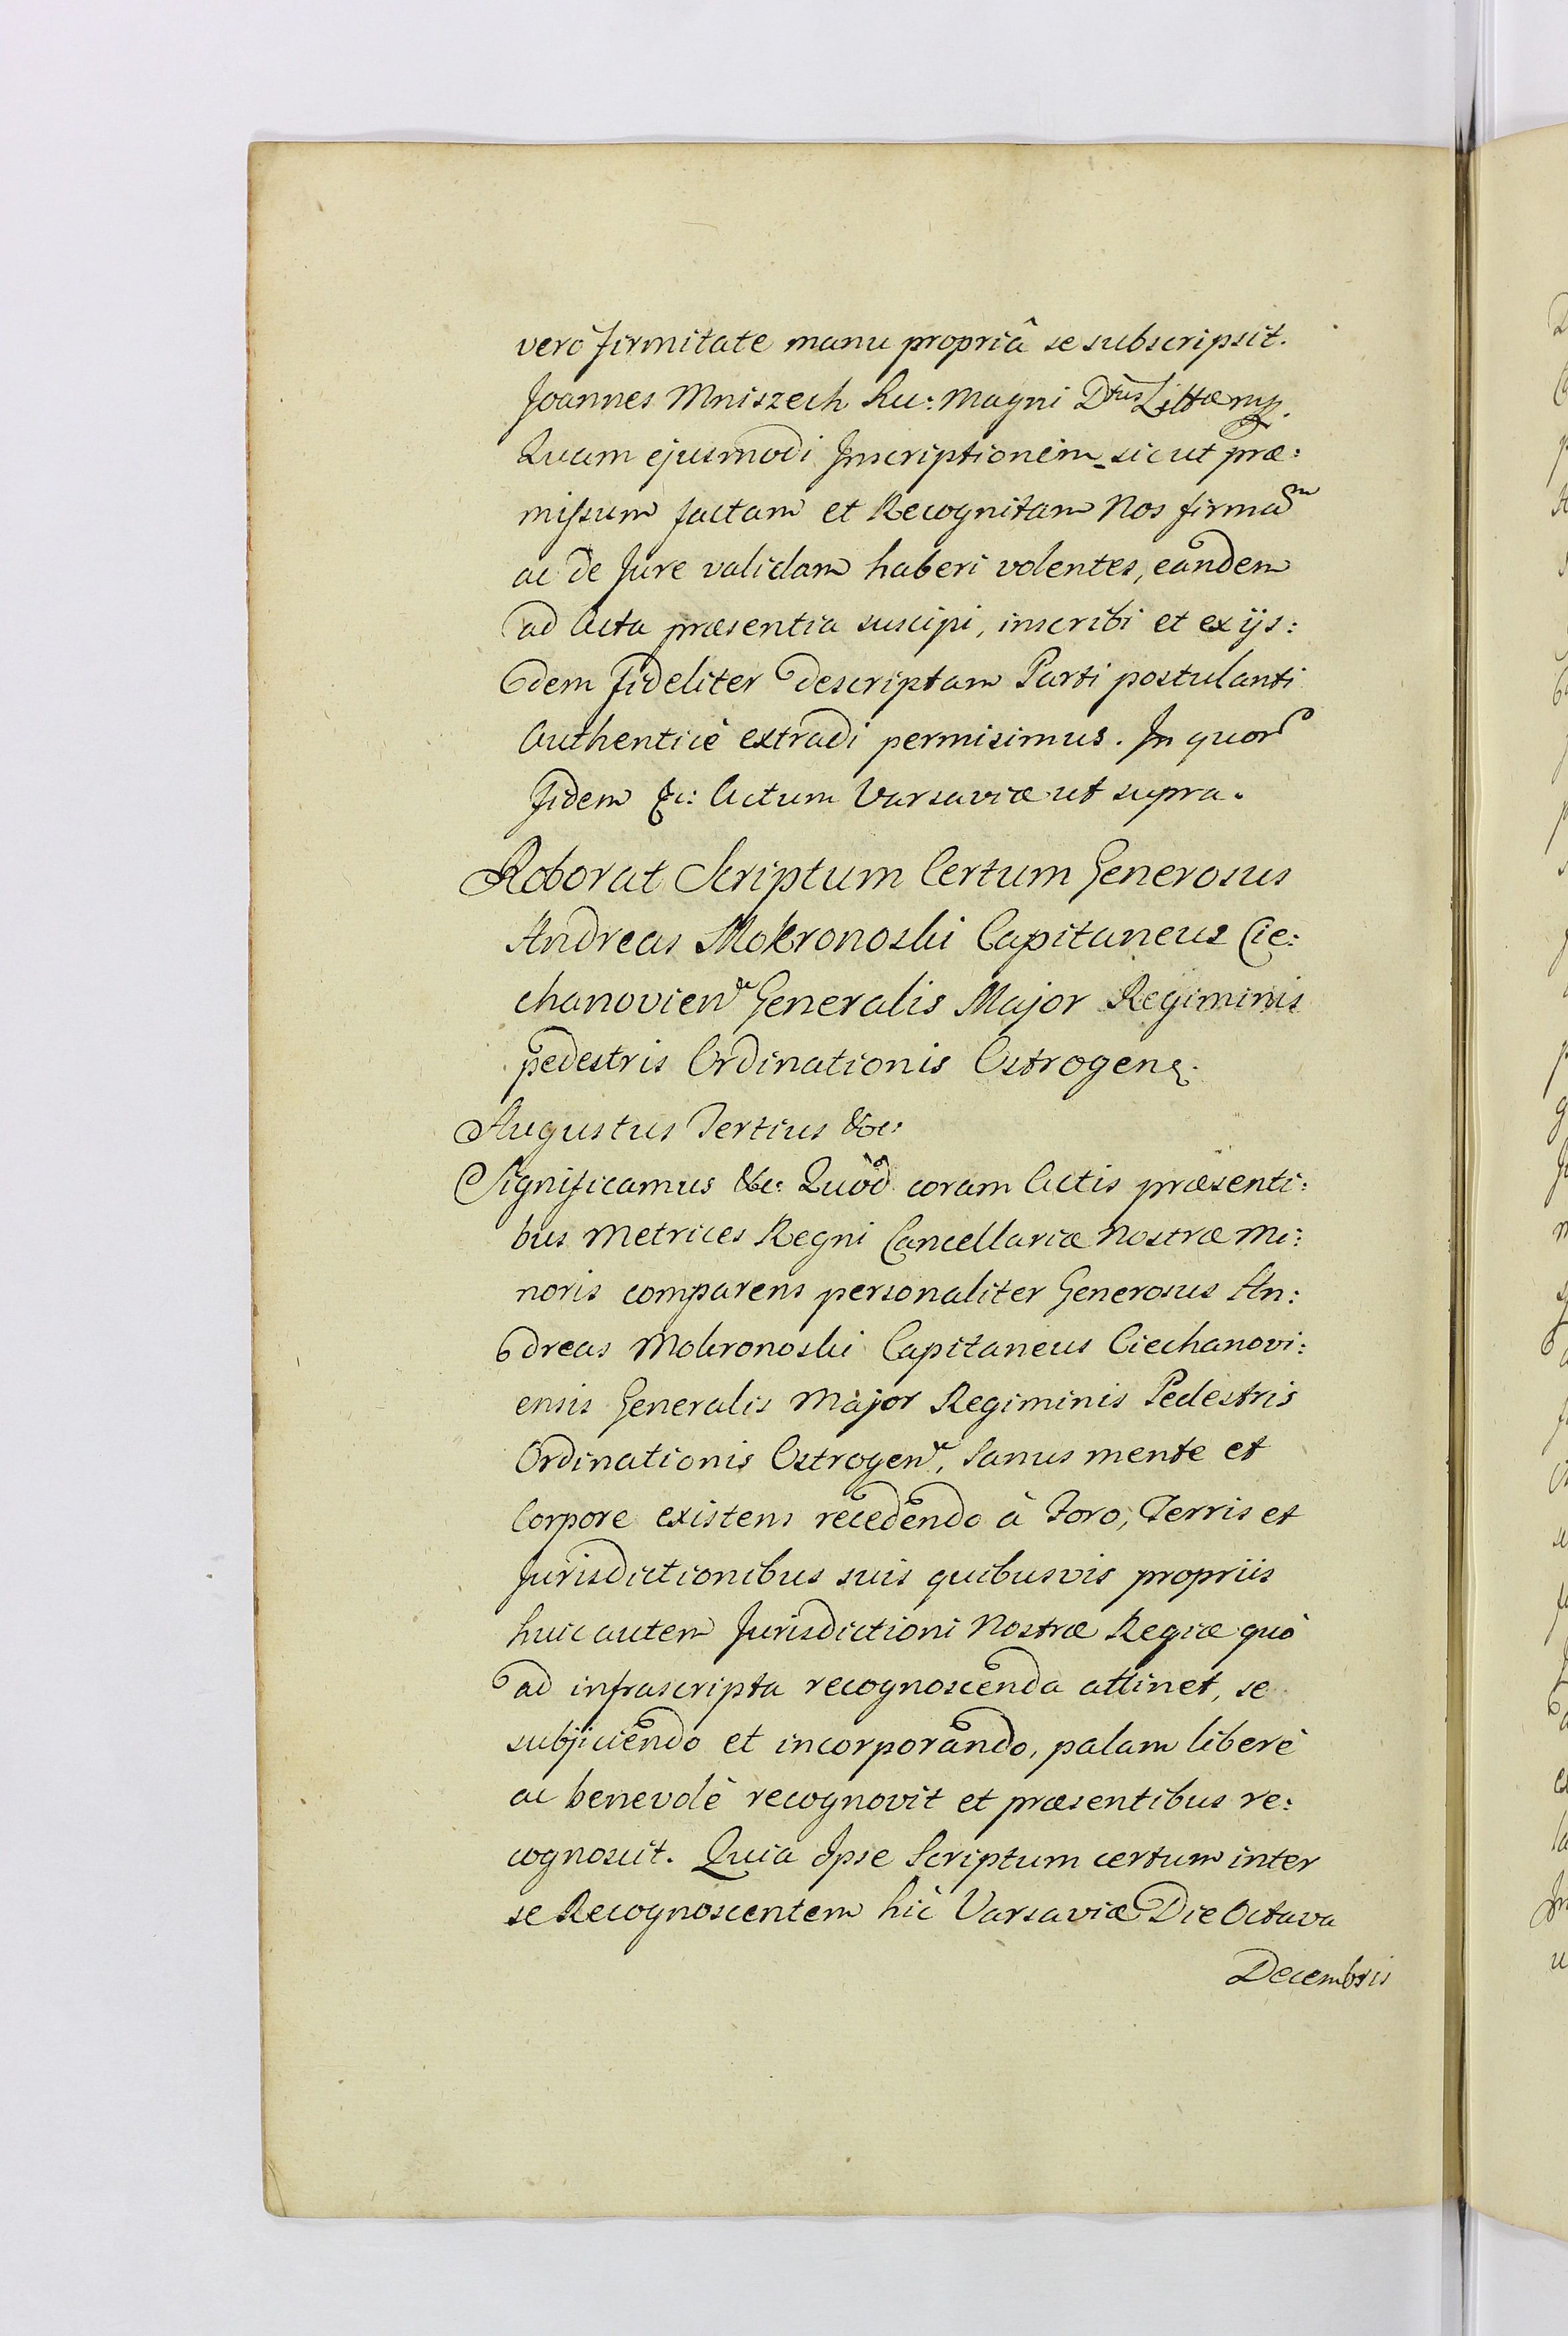 verò firmitate manu propriâ se subscripsit.
Joannes Mniszech Suc: Magni Dtus Littæ mp.
Quam ejusmodi Inscriptionem sicut præ:
missum factam et Recognitam Nos firmam
ac de Jure validam haberi volentes, eandem
ad Acta præsentia suscipi, inscribi et ex ijs:
dem fideliter descriptam Parti postulanti
Authenticè extradi permisimus. In quor
fidem &c: Actum Varsaviæ ut supra.
Roborat Scriptum Certum Generosus
Andreas Mokronoski Capitaneus Cie:
chanovien Generalis Major Regiminis
pedestris Ordinationis Ostrogen.
Augustus Tertius &c:
Significamus &c: Quòd coram Actis præsenti:
bus Metrices Regni Cancellariæ Nostræ Mi:
noris comparens personaliter Generosus An:
dreas Mokronoski Capitaneus Ciechanovi:
ensis Generalis Major Regiminis Pedestris
Ordinationis Ostrogen, Sanus mente et
Corpore existens recedendo à Foro, Terris et
Jurisdictionibus suis quibusvis propriis
huic autem Jurisdictioni Nostræ Regiæ quò
ad infrascripta recognoscenda attinet, se
subjiciendo et incorporando, palam liberè
ac benevolè recognovit et præsentibus re:
cognoscit. Quia Ipse Scriptum certum inter
se Recognoscentem hìc Varsaviæ Die Octava
Decembris